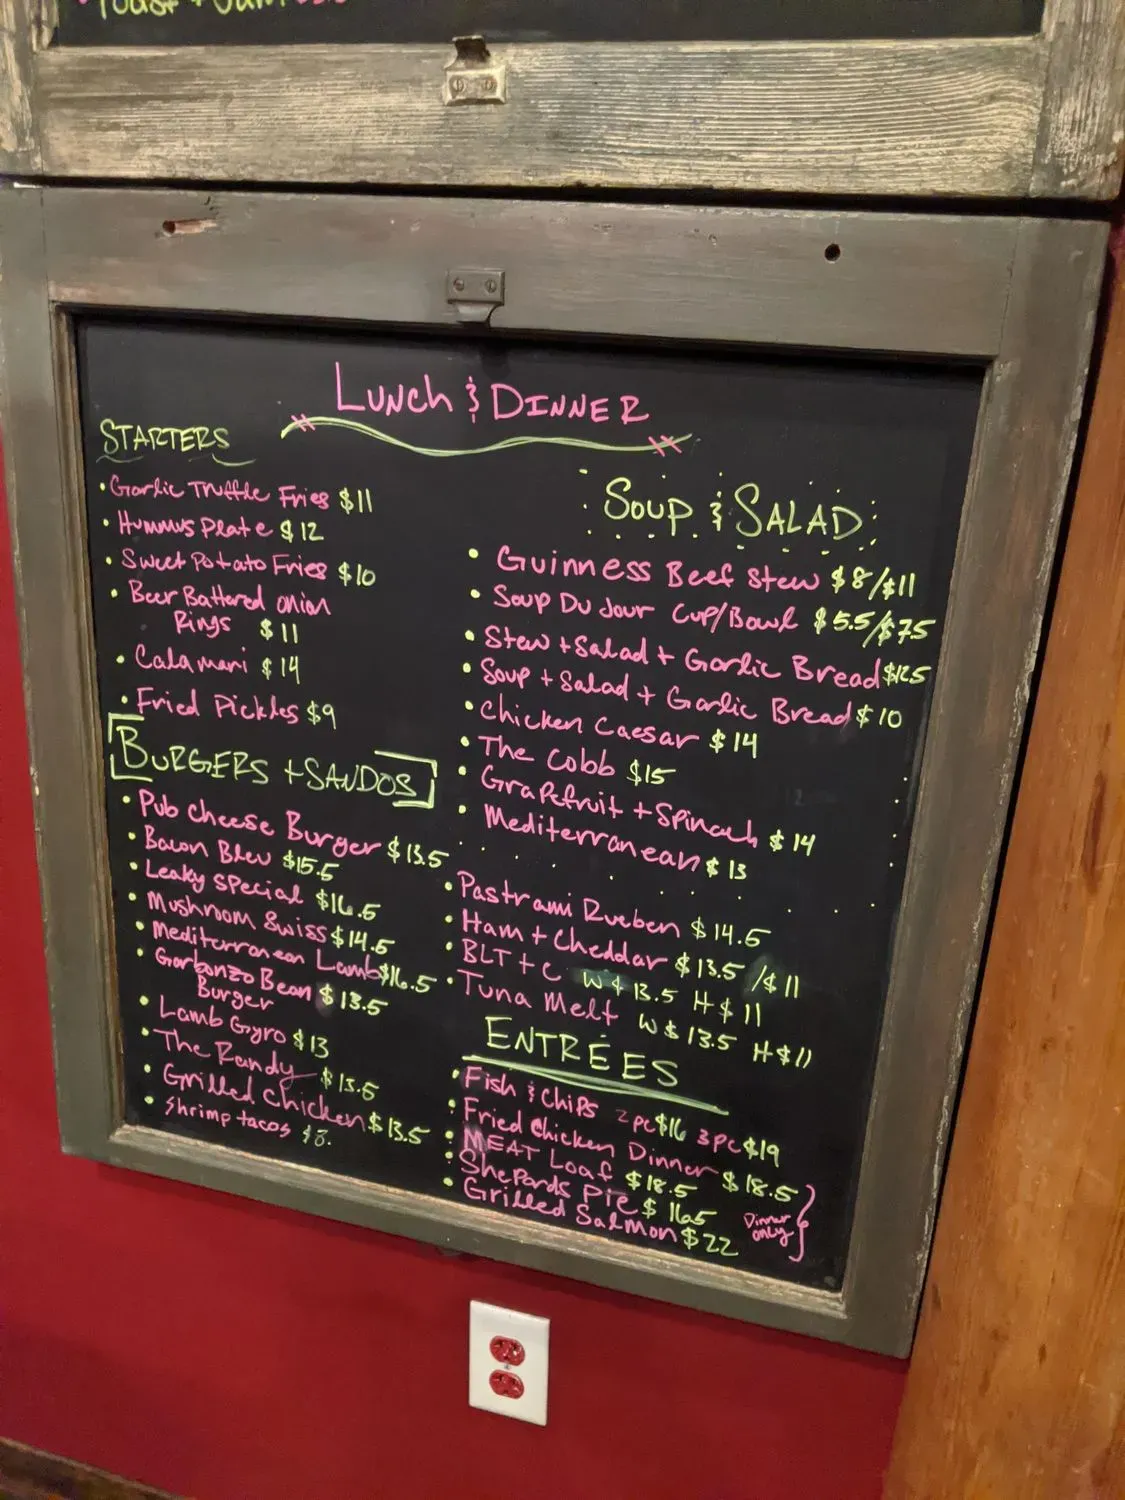 Toast + Jam
LUNCH & DINNER
STARTERS
• Garlic Truffle Fries $11
• Hummus Plate $12
• Sweet Potato Fries $10
• Beer Battered Onion
Rings $11
• Calamari $14
• Fried Pickles $9
BURGERS + SANDOS
• Pub Cheese Burger $13.5
• Bacon Bleu $15.5
• Leaky Special $16.5
• Mushroom Swiss $14.5
• Mediterranean Lamb $16.5
• Garbonzo Bean
Burger $13.5
• Lamb Gyro $13
• The Randy $13.5
• Grilled Chicken $13.5
• Shrimp tacos $8.
SOUP & SALAD
• Guinness Beef Stew $8/$11
• Soup Du Jour Cup/Bowl $5.5/$7.5
• Stew + Salad + Garlic Bread $12.5
• Soup + Salad + Garlic Bread $10
• Chicken Caesar $14
• The Cobb $15
• Grapefruit + Spinach $14
• Mediterranean $13
• Pastrami Rueben $14.5
• Ham + Cheddar $13.5 /$11
• BLT + C W $13.5 H $11
• Tuna Melt W $13.5 H $11
ENTRÉES
• Fish & Chips 2pc $16 3pc $19
• Fried Chicken Dinner $18.5
• MEAT Loaf $18.5
• Shepards Pie $16.5
• Grilled Salmon $22
Dinner
only